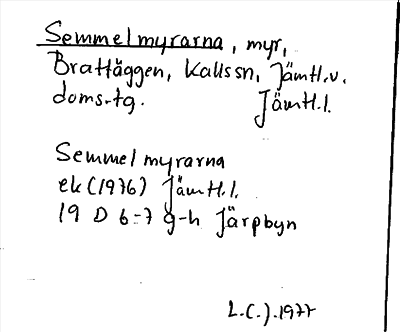 Semmelmyrarna, myr,
Brattäggen, Kallssn, Jämtl.v.
doms.tg. Jämtl.l.
Semmelmyrarna
ek (1976) Jämtl.l.
19 D 6-7 g-h Järpbyn
L.C.J. 1977